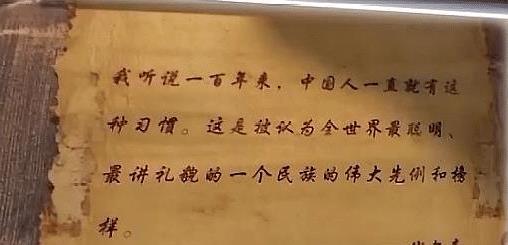 我听说一百年来，中国人一直就有这
种习惯。这是被认为全世界最聪明、
最讲礼貌的一个民族的伟大先例和榜
样。